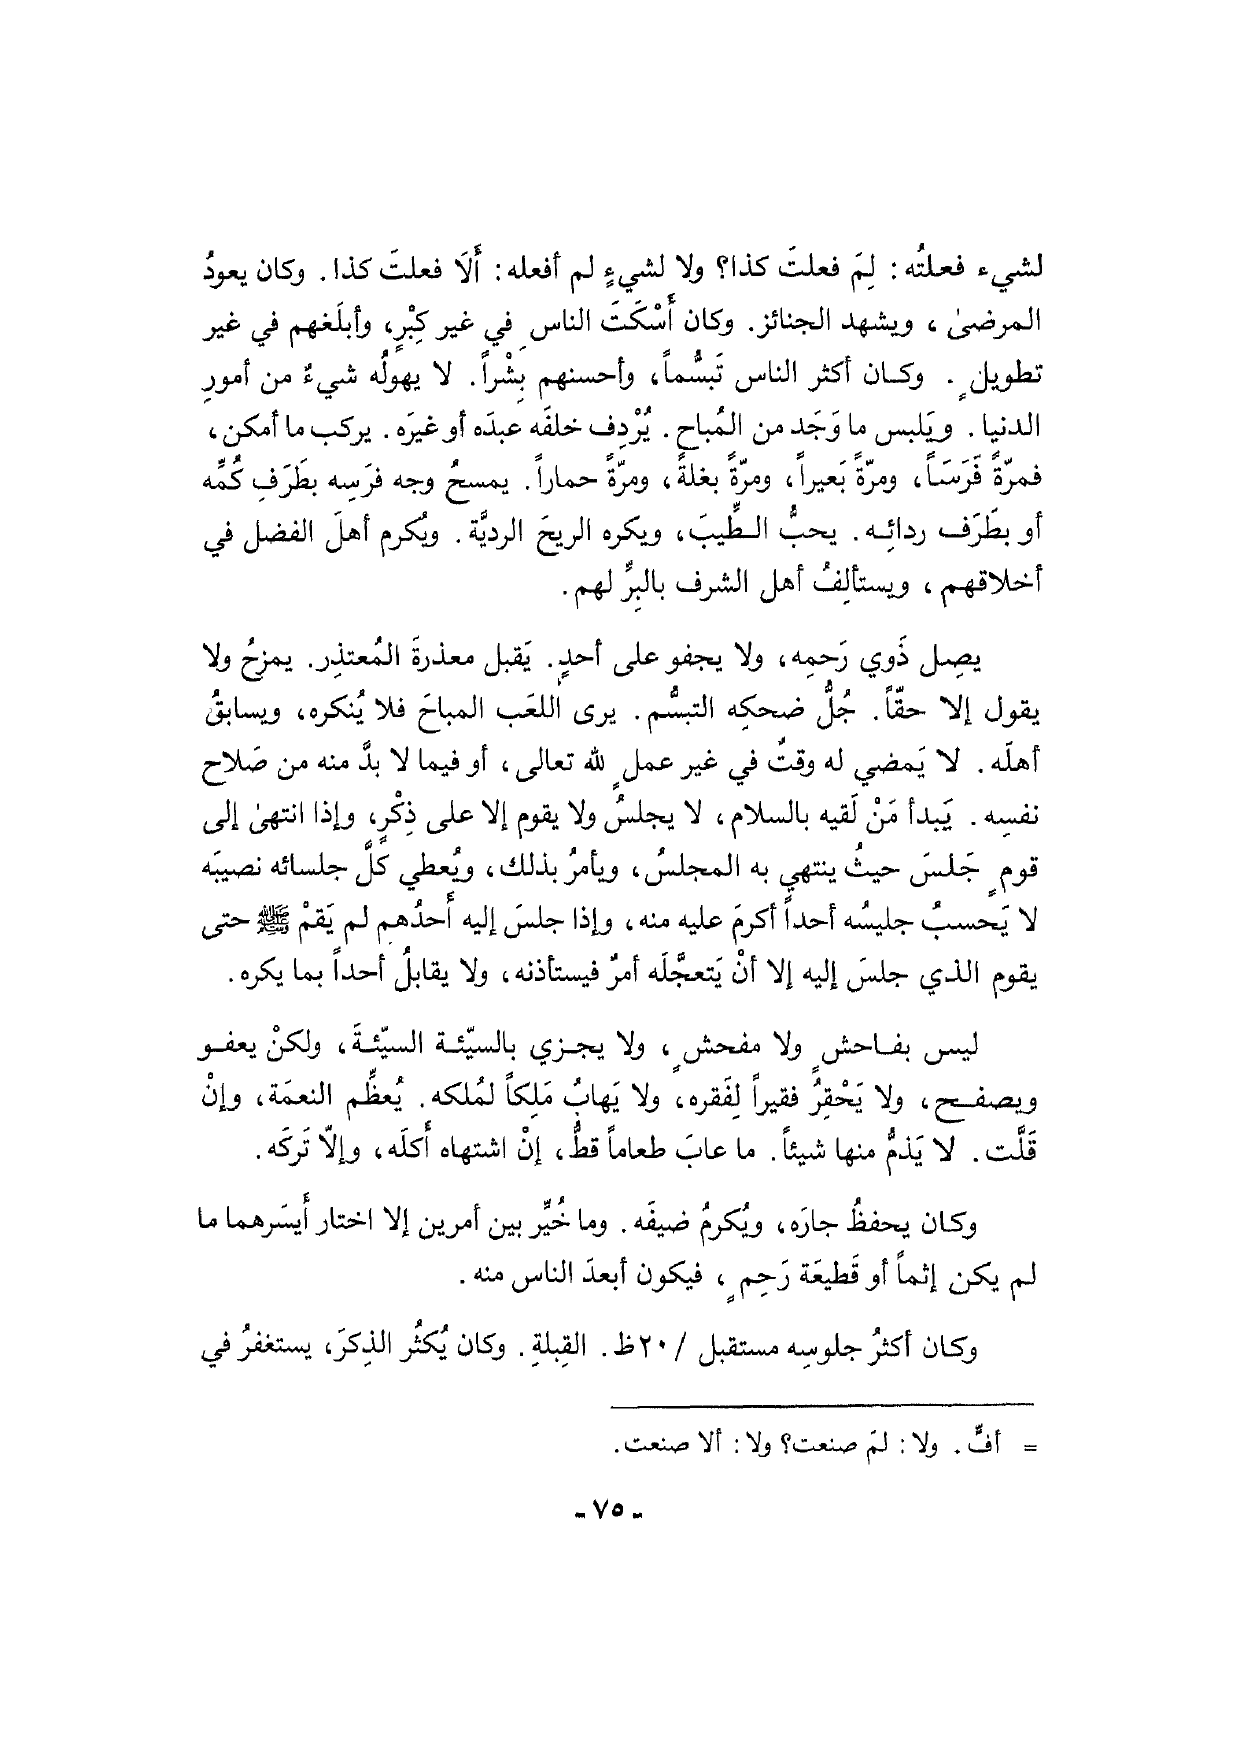 لشيء فعلتُه: لِمَ فعلتَ كذا؟ ولا لشيءٍ لم أفعله: أَلَا فعلتَ كذا. وكان يعودُ
المرضىٰ، ويشهد الجنائز. وكان أَسْكَتَ الناسِ في غير كِبْرٍ، وأبلَغهم في غير
تطويلٍ. وكان أكثر الناس تَبَسُّماً، وأحسنهم بِشْراً. لا يهولُه شيءٌ من أمورِ
الدنيا. ويَلبس ما وَجَد من المُباح. يُرْدِف خلفَه عبدَه أو غيرَه. يركب ما أمكن،
فمرّةً فَرَسَاً، ومرّةً بَعيراً، ومرّةً بغلةً، ومرّةً حماراً. يمسحُ وجه فرَسِه بطَرَفِ كُمِّه
أو بطَرَف ردائِه. يحبُّ الطِّيبَ، ويكره الريحَ الرديَّة. ويُكرم أهلَ الفضل في
أخلاقهم، ويستألِفُ أهل الشرف بالبِرِّ لهم.
يصِل ذَوي رَحمِه، ولا يجفو على أحدٍ. يَقبل معذرةَ المُعتذِر. يمزحُ ولا
يقول إلا حقّاً. جُلُّ ضحكِه التبسُّم. يرى اللعَب المباحَ فلا يُنكره، ويسابقُ
أهلَه. لا يَمضي له وقتٌ في غير عملٍ لله تعالى، أو فيما لا بدَّ منه من صَلاح
نفسِه. يَبدأ مَنْ لَقيه بالسلام، لا يجلسُ ولا يقوم إلا على ذِكْرٍ، وإذا انتهىٰ إلى
قومٍ جَلسَ حيثُ ينتهي به المجلسُ، ويأمرُ بذلك، ويُعطي كلَّ جلسائه نصيبَه
لا يَحسبُ جليسُه أحداً أكرمَ عليه منه، وإذا جلسَ إليه أَحدُهم لم يَقمْ ﷺ حتى
يقوم الذي جلسَ إليه إلا أنْ يَتعجَّلَه أمرٌ فيستأذنه، ولا يقابلُ أحداً بما يكره.
ليس بفاحشٍ ولا مفحشٍ، ولا يجزي بالسيّئة السيّئةَ، ولكنْ يعفو
ويصفح، ولا يَحْقِرُ فقيراً لِفَقره، ولا يَهابُ مَلِكاً لمُلكه. يُعظِّم النعمَة، وإنْ
قَلَّت. لا يَذمُّ منها شيئاً. ما عابَ طعاماً قطُّ، إنْ اشتهاه أَكلَه، وإلّا تَركَه.
وكان يحفظُ جارَه، ويُكرمُ ضيفَه. وما خُيِّر بين أمرين إلا اختار أَيسَرهما ما
لم يكن إثماً أو قَطيعَة رَحِمٍ، فيكون أبعدَ الناس منه.
وكان أكثرُ جلوسِه مستقبل /٢٠ظ. القِبلةِ. وكان يُكثُر الذِكرَ، يستغفرُ في
= أفٍّ. ولا: لمَ صنعت؟ ولا: ألا صنعت.
- ٧٥ -